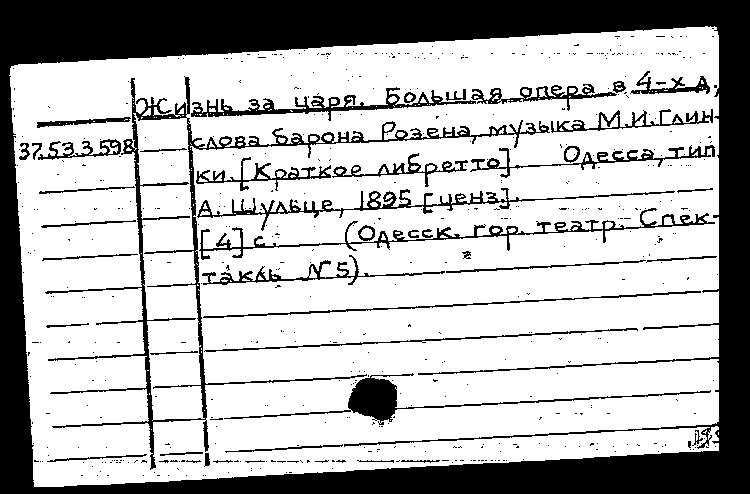 Жизнь за царя. Большая опера в 4-х д.,
37.53.3.598 слова барона Розена, музыка М.И. Глин-
ки. [Краткое либретто]. Одесса, тип.
А. Шульце, 1895 [ценз].
[4] с. (Одесск. гор. театр. Спек-
такль № 5).